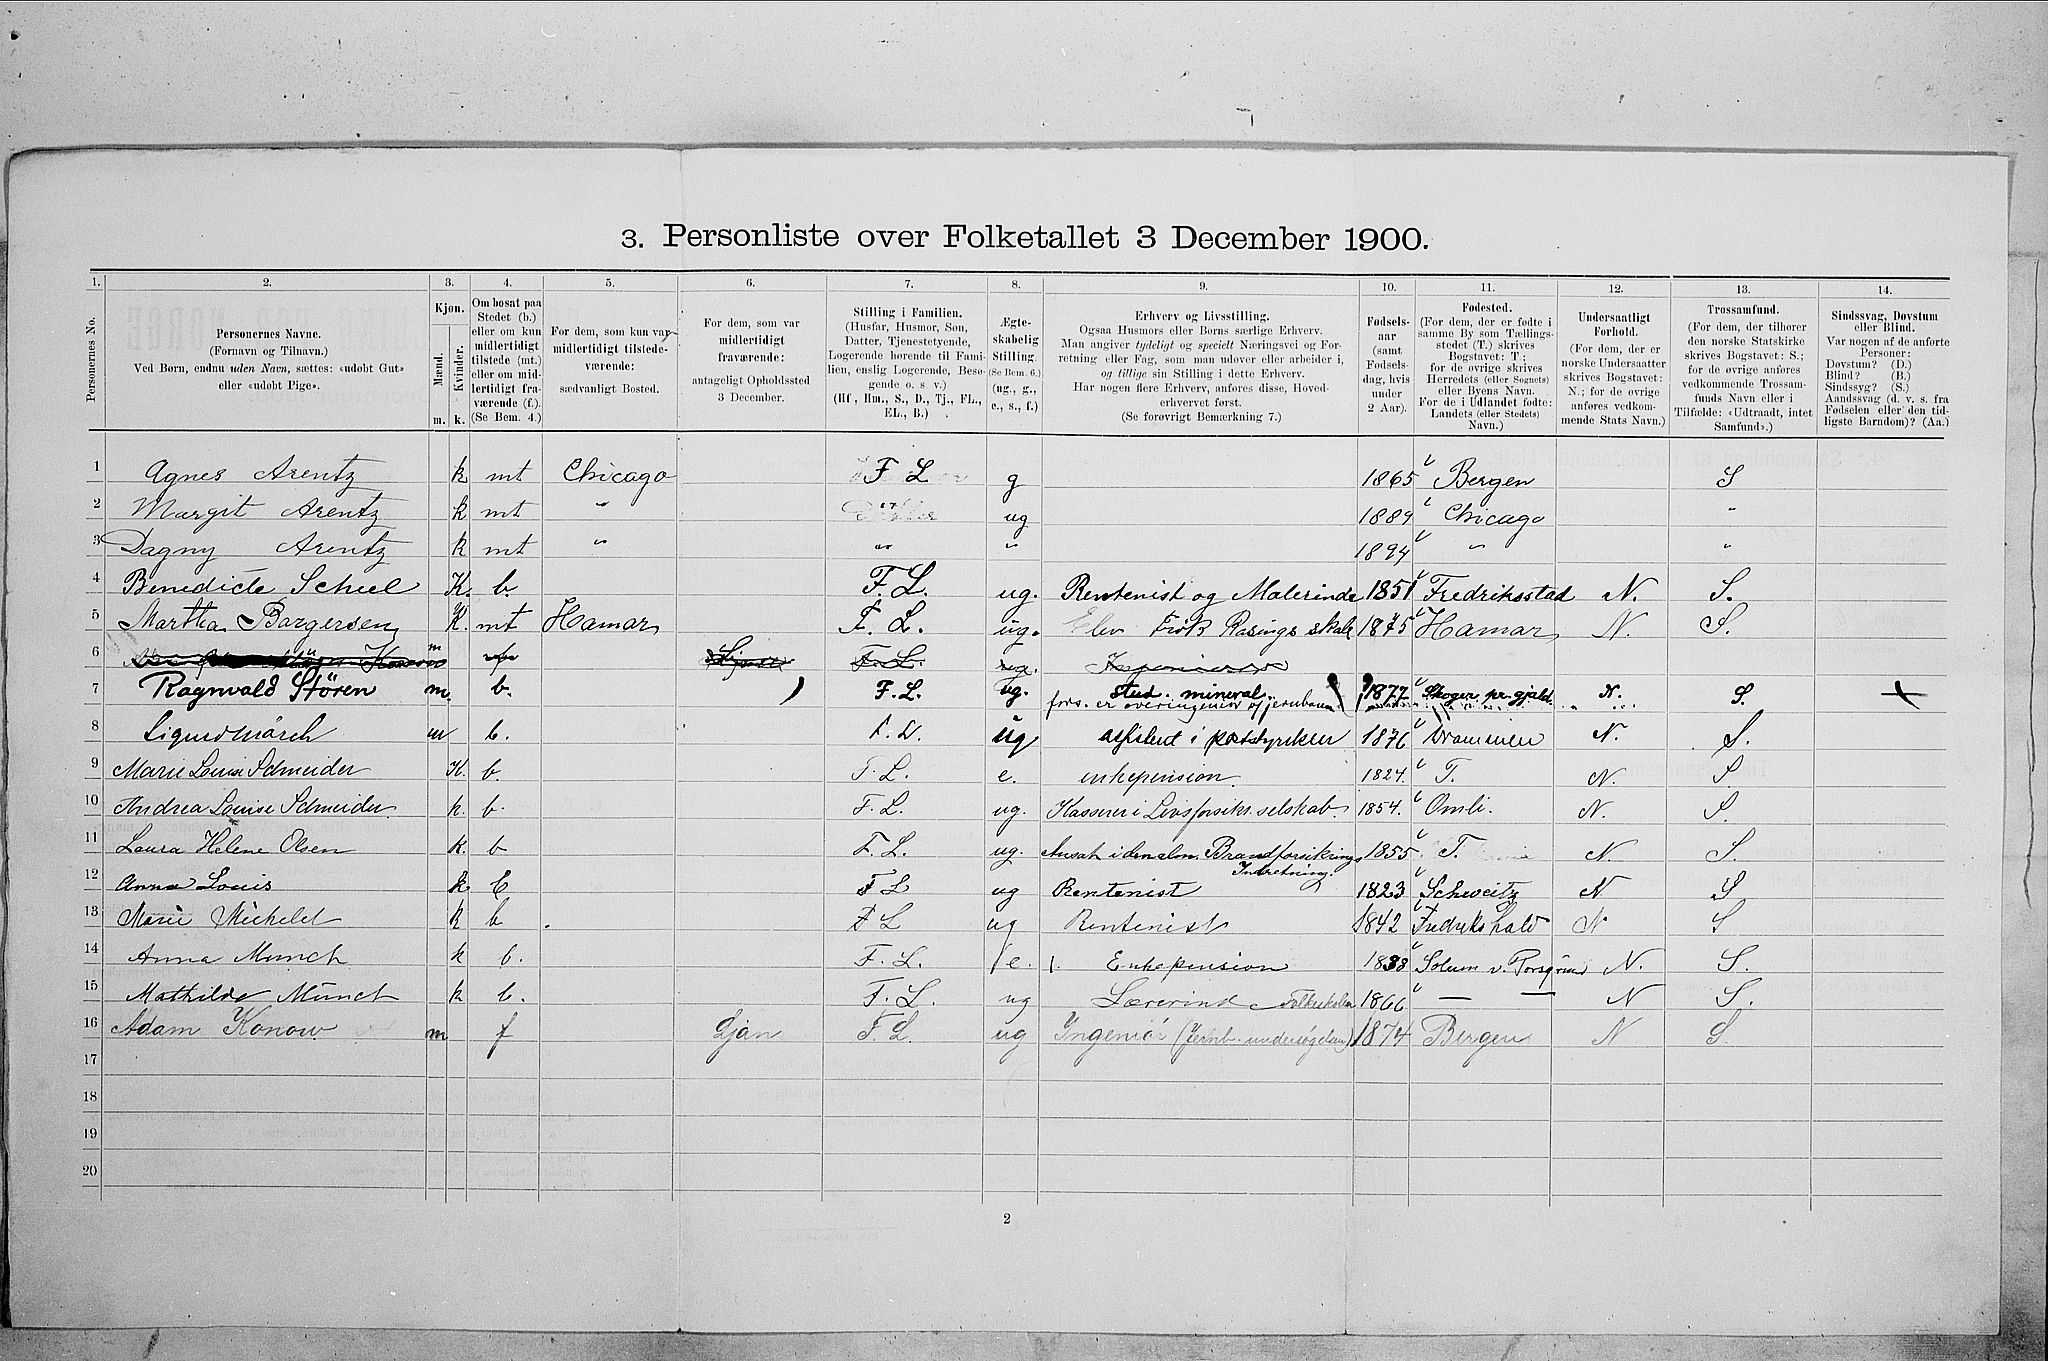 3. Personliste over Folketallet 3 December 1900.
1. 2. 3. 4. 5. 6. 7. 8. 9. 10. 11. 12. 13. 14.
Personernes No.
Personernes Navne.
(Fornavn og Tilnavn.)
Ved Børn, endnu uden Navn, sættes: «udøbt Gut»
eller «udøbt Pige».
Kjøn.
Mænd.
Kvinder.
m. k.
Om bosat paa
Stedet (b.)
eller om kun
midlertidigt
tilstede (mt.)
eller om mid-
lertidigt fra-
værende (f.).
(Se Bem. 4.)
For dem, som kun var
midlertidigt tilstede-
værende:
sædvanligt Bosted.
For dem, som var
midlertidigt
fraværende:
antageligt Opholdssted
3 December.
Stilling i Familien.
(Husfar, Husmor, Søn,
Datter, Tjenestetyende,
Logerende hørende til Fami-
lien, enslig Logerende, Besø-
gende o. s v.)
(Hf, Hm., S., D., Tj., FL.,
EL., B.)
Ægte-
skabelig
Stilling.
(Se Bem. 6.)
(ug., g.,
e., s., f.)
Erhverv og Livsstilling.
Ogsaa Husmors eller Børns særlige Erhverv.
Man angiver tydeligt og specielt Næringsvei og For-
retning eller Fag, som man udøver eller arbeider i,
og tillige sin Stilling i dette Erhverv.
Har nogen flere Erhverv, anføres disse, Hoved-
erhvervet først.
(Se forøvrigt Bemærkning 7.)
Fødsels-
aar
(samt
Fødsels-
dag, hvis
under
2 Aar).
Fødested.
(For dem, der er fødte i
samme By som Tællings-
stedet (T.) skrives
Bogstavet: T;
for de øvrige skrives
Herredets (eller Sognets)
eller Byens Navn.
For de i Udlandet fødte:
Landets (eller Stedets)
Navn.)
Undersaatligt
Forhold.
(For dem, der er
norske Undersaatter
skrives Bogstavet:
N.; for de øvrige
anføres vedkom-
mende Stats Navn.)
Trossamfund.
(For dem, der tilhører
den norske Statskirke
skrives Bogstavet: S.;
for de øvrige anføres
vedkommende Trossam-
funds Navn eller i
Tilfælde: «Udtraadt, intet
Samfund».)
Sindssvag, Døvstum
eller Blind.
Var nogen af de anførte
Personer:
Døvstum? (D.)
Blind? (B.)
Sindssyg? (S.)
Aandssvag (d. v. s. fra
Fødselen eller den tid-
ligste Barndom)? (Aa.)
1 Agnes Arentz k mt Chicago F L g 1865 Bergen S
2 Margit Arentz k mt " " ug 1889 Chicago "
3 Dagny Arentz k mt " " " 1894 " "
4 Benedicte Scheel K. b. F. L. ug. Rentenist og Malerinde 1851 Fredriksstad N. S.
5 Martha Borgersen K. mt Hamar F. L. ug. Elev Frøk Rasings skole 1875 Hamar N. S.
6 m F. L. ug.
7 Ragnvald Stören m. b. F. L. ug. stud. mineral. 1877 Skoger pr. gjæld. N. S.
8 m b. F. L. ug assistent i poststyrelsen 1876 Drammen N. S.
9 Marie Louise Schneider K. b. F. L. e. enkepension 1824. T. N. S
10 Andrea Louise Schneider k. b. F. L. ug. Kasserer i Livsforsikr. selskab. 1854. Omli. N. S.
11 Laura Helene Olsen k. b F. L. ug. Ansat i den alm. Brandforsikrings 1855 T. N. S.
Indretning.
12 Anna Louis k. b F L ug Rentenist 1823 Schweitz N S
13 Marie Michelet k b F L ug Rentenist 1842 Fredrikshald N S
14 Anna Munch k b. F. L. e. Enkepension 1838 Solum v. Porsgrund N. S.
15 Mathilde Münch k b. F. L. ug Lærerind Folkeskolen 1866 — — N S.
16 Adam Konow m f Gjøn F L ug Ingeniør (Jernb. undersøgelsen) 1874 Bergen N S.
17
18
19
20
2